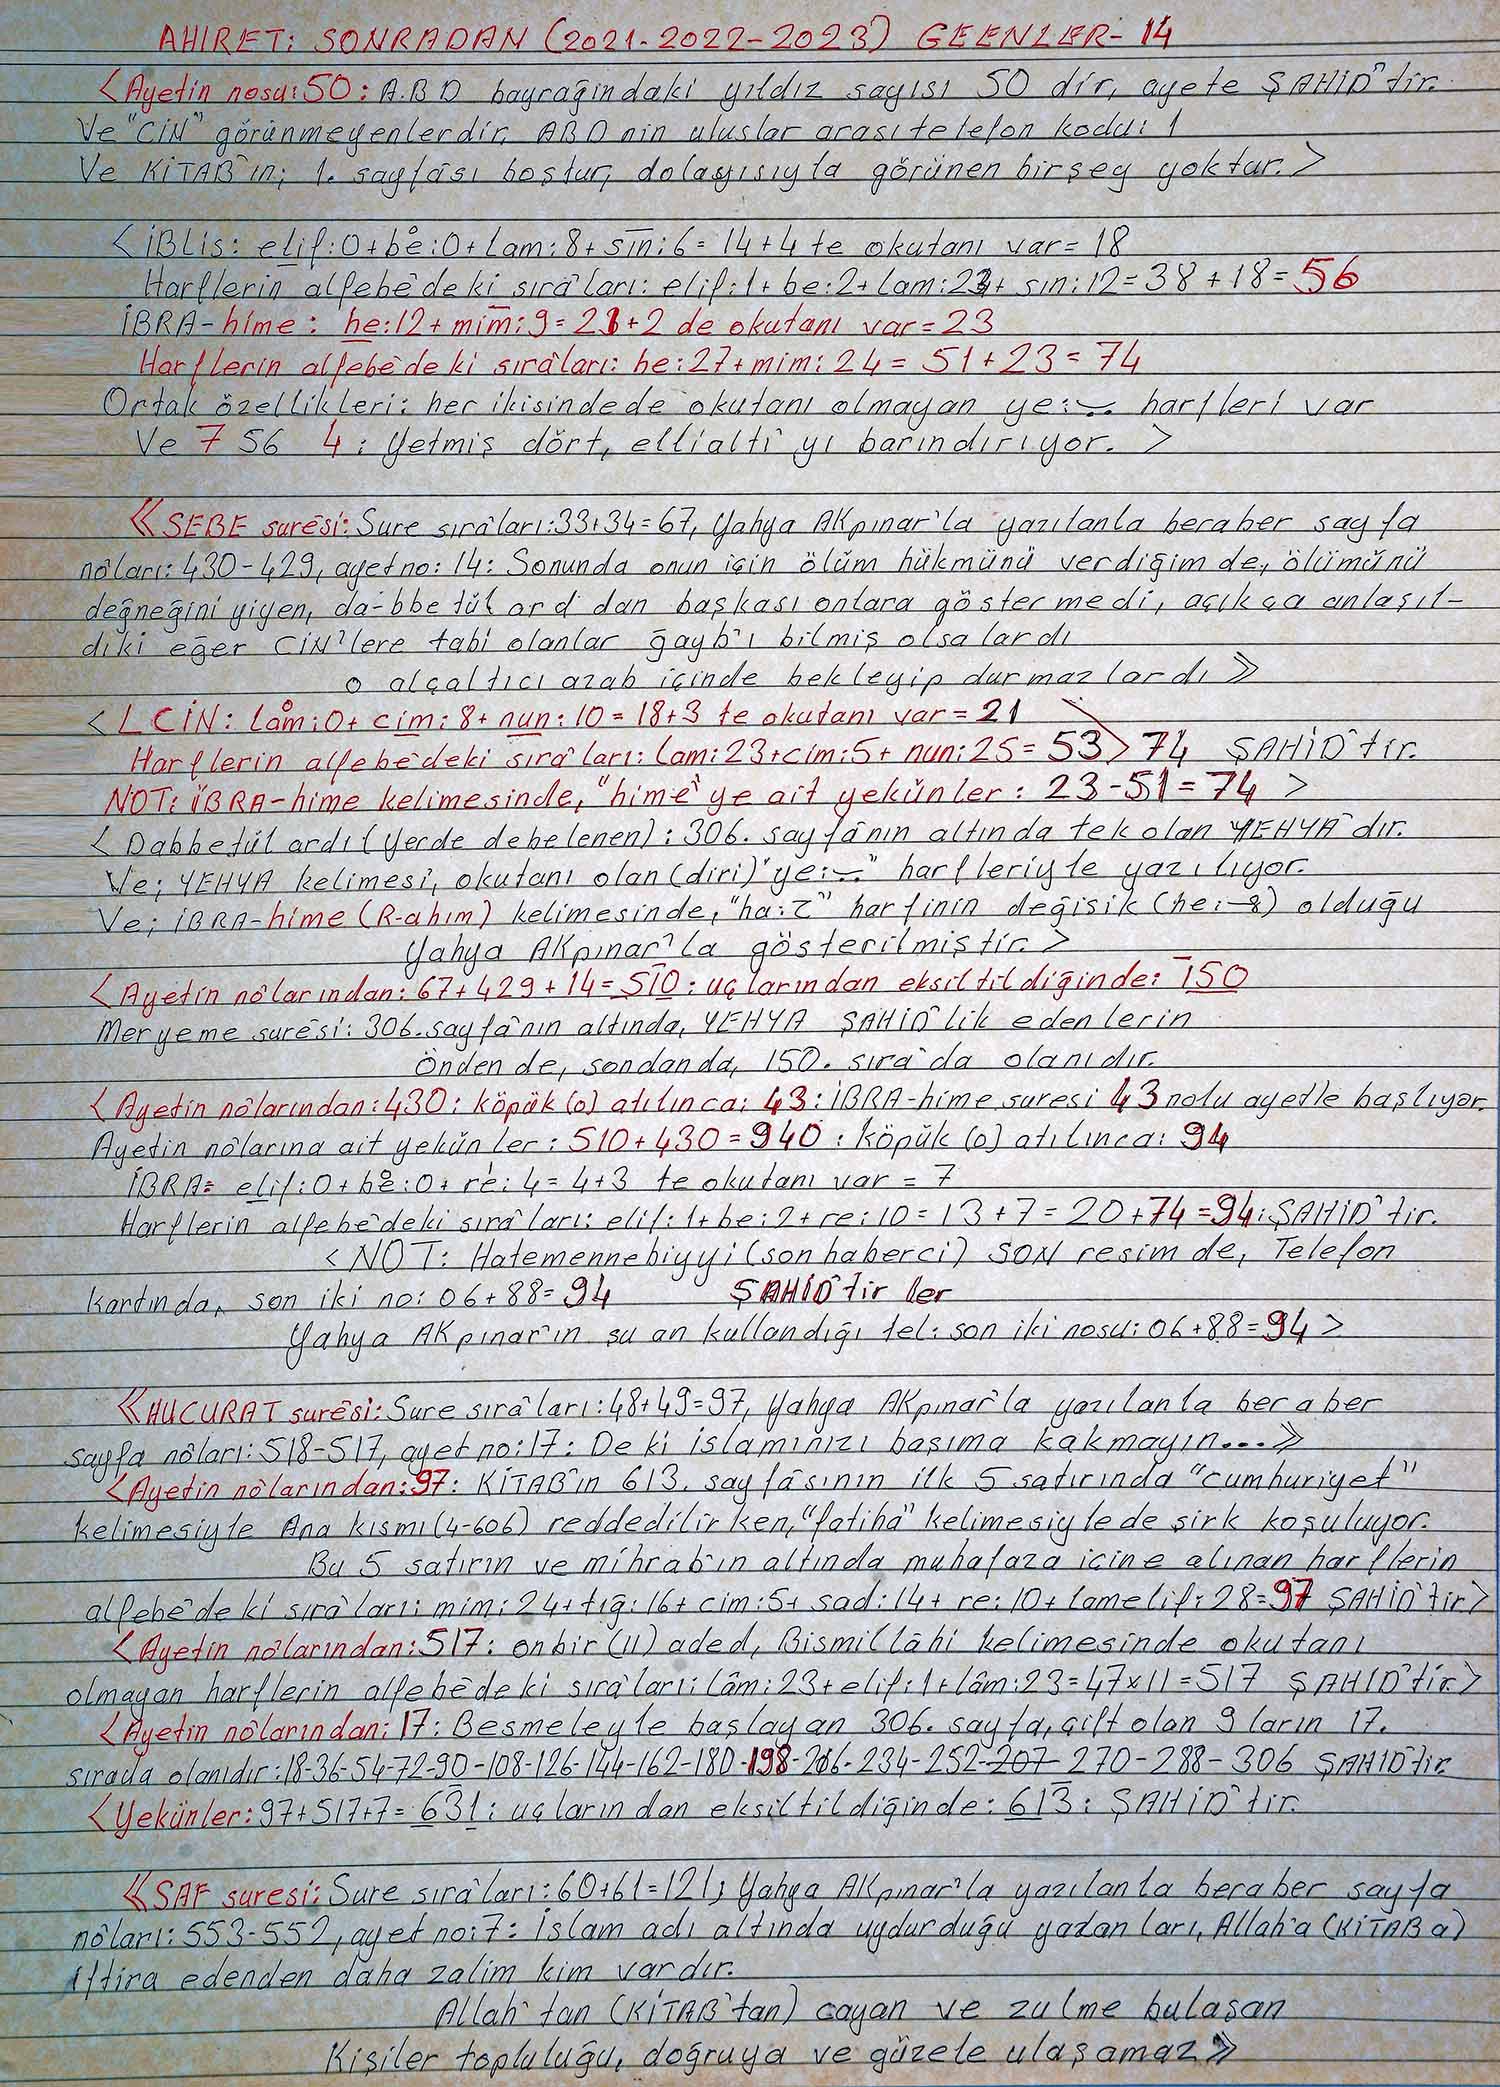 AHIRET: SONRADAN (2021-2022-2023) GEENLER-14
<Ayetin nosu:50: A.B D bayrağındaki yıldız sayısı 50 dir, ayete ŞAHİD^tir.
Ve "CİN" görünmeyenlerdir, ABD nin uluslar arası telefon kodu: 1
Ve KİTAB^ın; 1. sayfâsı boştur, dolayısıyla görünen birşey yoktur.>
<İBLİS: elif:0+be:0+Lam:8+sin:6=14+4 te okutanı var=18
Harflerin alfebê'deki sıra^ları: elif:1+be:2+Lam:23+ sin:12=38+18=56
İBRA-hime: he:12+mim:9=21+2 de okutanı var=23
Harflerin alfebê'deki sırâları: he:27+mim:24=51+23=74
Ortak özellikleri: her ikisindede okutanı olmayan ye: harfleri var
Ve 7 56 4: Yetmiş dört, ellialtı yı barındırıyor.>
≪SEBE surêsi: Sure sırâ^ları:33+34=67, Yahya AKpınar'la yazılanla beraber sayfa
nôları:430-429, ayet no:14: Sonunda onun için ölüm hükmünü verdiğim de, ölümünü
değneğini yiyen, dâ-bbe tül ard dan başkası onlara göstermedi, açıkça anlaşıl-
dıki eğer CİN'lere tabi olanlar ğayb'ı bilmiş olsalardı
o alçaltıcı azab içinde bekleyip durmazlardı≫
<LCİN: lâm:0+cim:8+nun:10=18+3 te okutanı var=21
Harflerin alfebê'deki sırâ^ları: Lam:23+cim:5+nun:25=53> 74 ŞAHİD^tir.
NOT: İBRA-hime kelimesinde, "hime"ye ait yekünler: 23-51=74 >
<Dabbetül ardı(Yerde debelenen): 306. sayfânın altında tek olan YEHYA^dır.
Ve; YEHYA kelimesi, okutanı olan(diri)"ye:" harfleriyle yazılıyor.
Ve; İBRA-hime (R-ahım) kelimesinde, "ha:ح" harfinin değişik (he:) olduğu
Yahya AKpınar'la gösterilmiştir.>
<Ayetin nôlarından: 67+429+14=510: uçlarından eksiltildiğinde: 150
Meryeme surêsi: 306.sayfânın altında, YEHYA ŞAHİD^lik edenlerin
Önden de, sondanda, 150. sıra^da olanıdır.
<Ayetin nôlarından:430: köpük(o) atılınca: 43:İBRA-hime suresi 43 nolu ayetle başlıyor.
Ayetin nôlarına ait yekünler: 510+430=940: köpük(o) atılınca: 94
İBRA: elif:0+be:0+re:4=4+3 te okutanı var = 7
Harflerin alfebê'deki sırâ^ları: elif:1+be:2+re:10=13+7=20+74=94:ŞAHİD^tir.
<NOT: Hatemennebiyyi(son haberci) SON resim de, Telefon
kartında, son iki no: 06+88=94 ŞAHİD^tir ler
Yahya AKpınar'ın şu an kullandığı tel: son iki nosu: 06+88=94>
≪HUCURAT surêsi: Sure sırâ^ları:48+49=97, Yahya AKpınar'la yazılanla beraber
sayfa nôları:518-517, ayet no:17: De ki islamınızı başıma kakmayın...≫
<Ayetin nôlarından:97: KİTAB^ın 613. sayfâsının ilk 5 satırında "cumhuriyet"
kelimesiyle Ana kısmı(4-606) reddedilirken, "fatiha" kelimesiylede şirk koşuluyor.
Bu 5 satırın ve mihrab'ın altında muhafaza içine alınan harflerin
alfebê'deki sırâ^ları: mim:24+tığ:16+cim:5+sad:14+re:10+lamelif:28=97 ŞAHİD^tir>
<Ayetin nôlarından:517: onbir (11) aded, Bismillâhi kelimesinde okutanı
olmayan harflerin alfebê'deki sırâ^ları: lâm:23+elif:1+lâm:23=47x11=517 ŞAHİD^tir>
<Ayetin nôlarından:17: Besmeleyle başlayan 306. sayfa, çift olan 9 ların 17.
sırada olanıdır:18-36-54-72-90-108-126-144-162-180-198-216-234-252-207-270-288-306 ŞAHİD^tir.
<Yekünler:97+517+7=631: uçlarından eksiltildiğinde: 613: ŞAHİD^tir.
≪SAF suresi: Sure sırâ^ları:60+61=121, Yahya AKpınar'la yazılanla beraber sayfa
nôları:553-552, ayet no:7: İslam adı altında uydurduğu yazanları, Allah^a (KİTAB a)
iftira edenden daha zalim kim vardır.
Allah^tan (KİTAB^tan) cayan ve zulme bulaşan
Kişiler topluluğu, doğruya ve güzele ulaşamaz≫